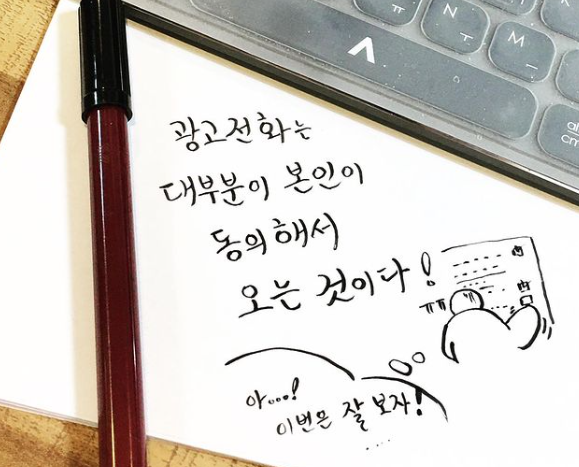 ㅠ
N
ㅜ
M
ㅡ
al
cm
광고전화는
대부분이 본인이
동의해서
오는 것이다!
ㅠㅠ
아...!
이번은 잘 보자!
....